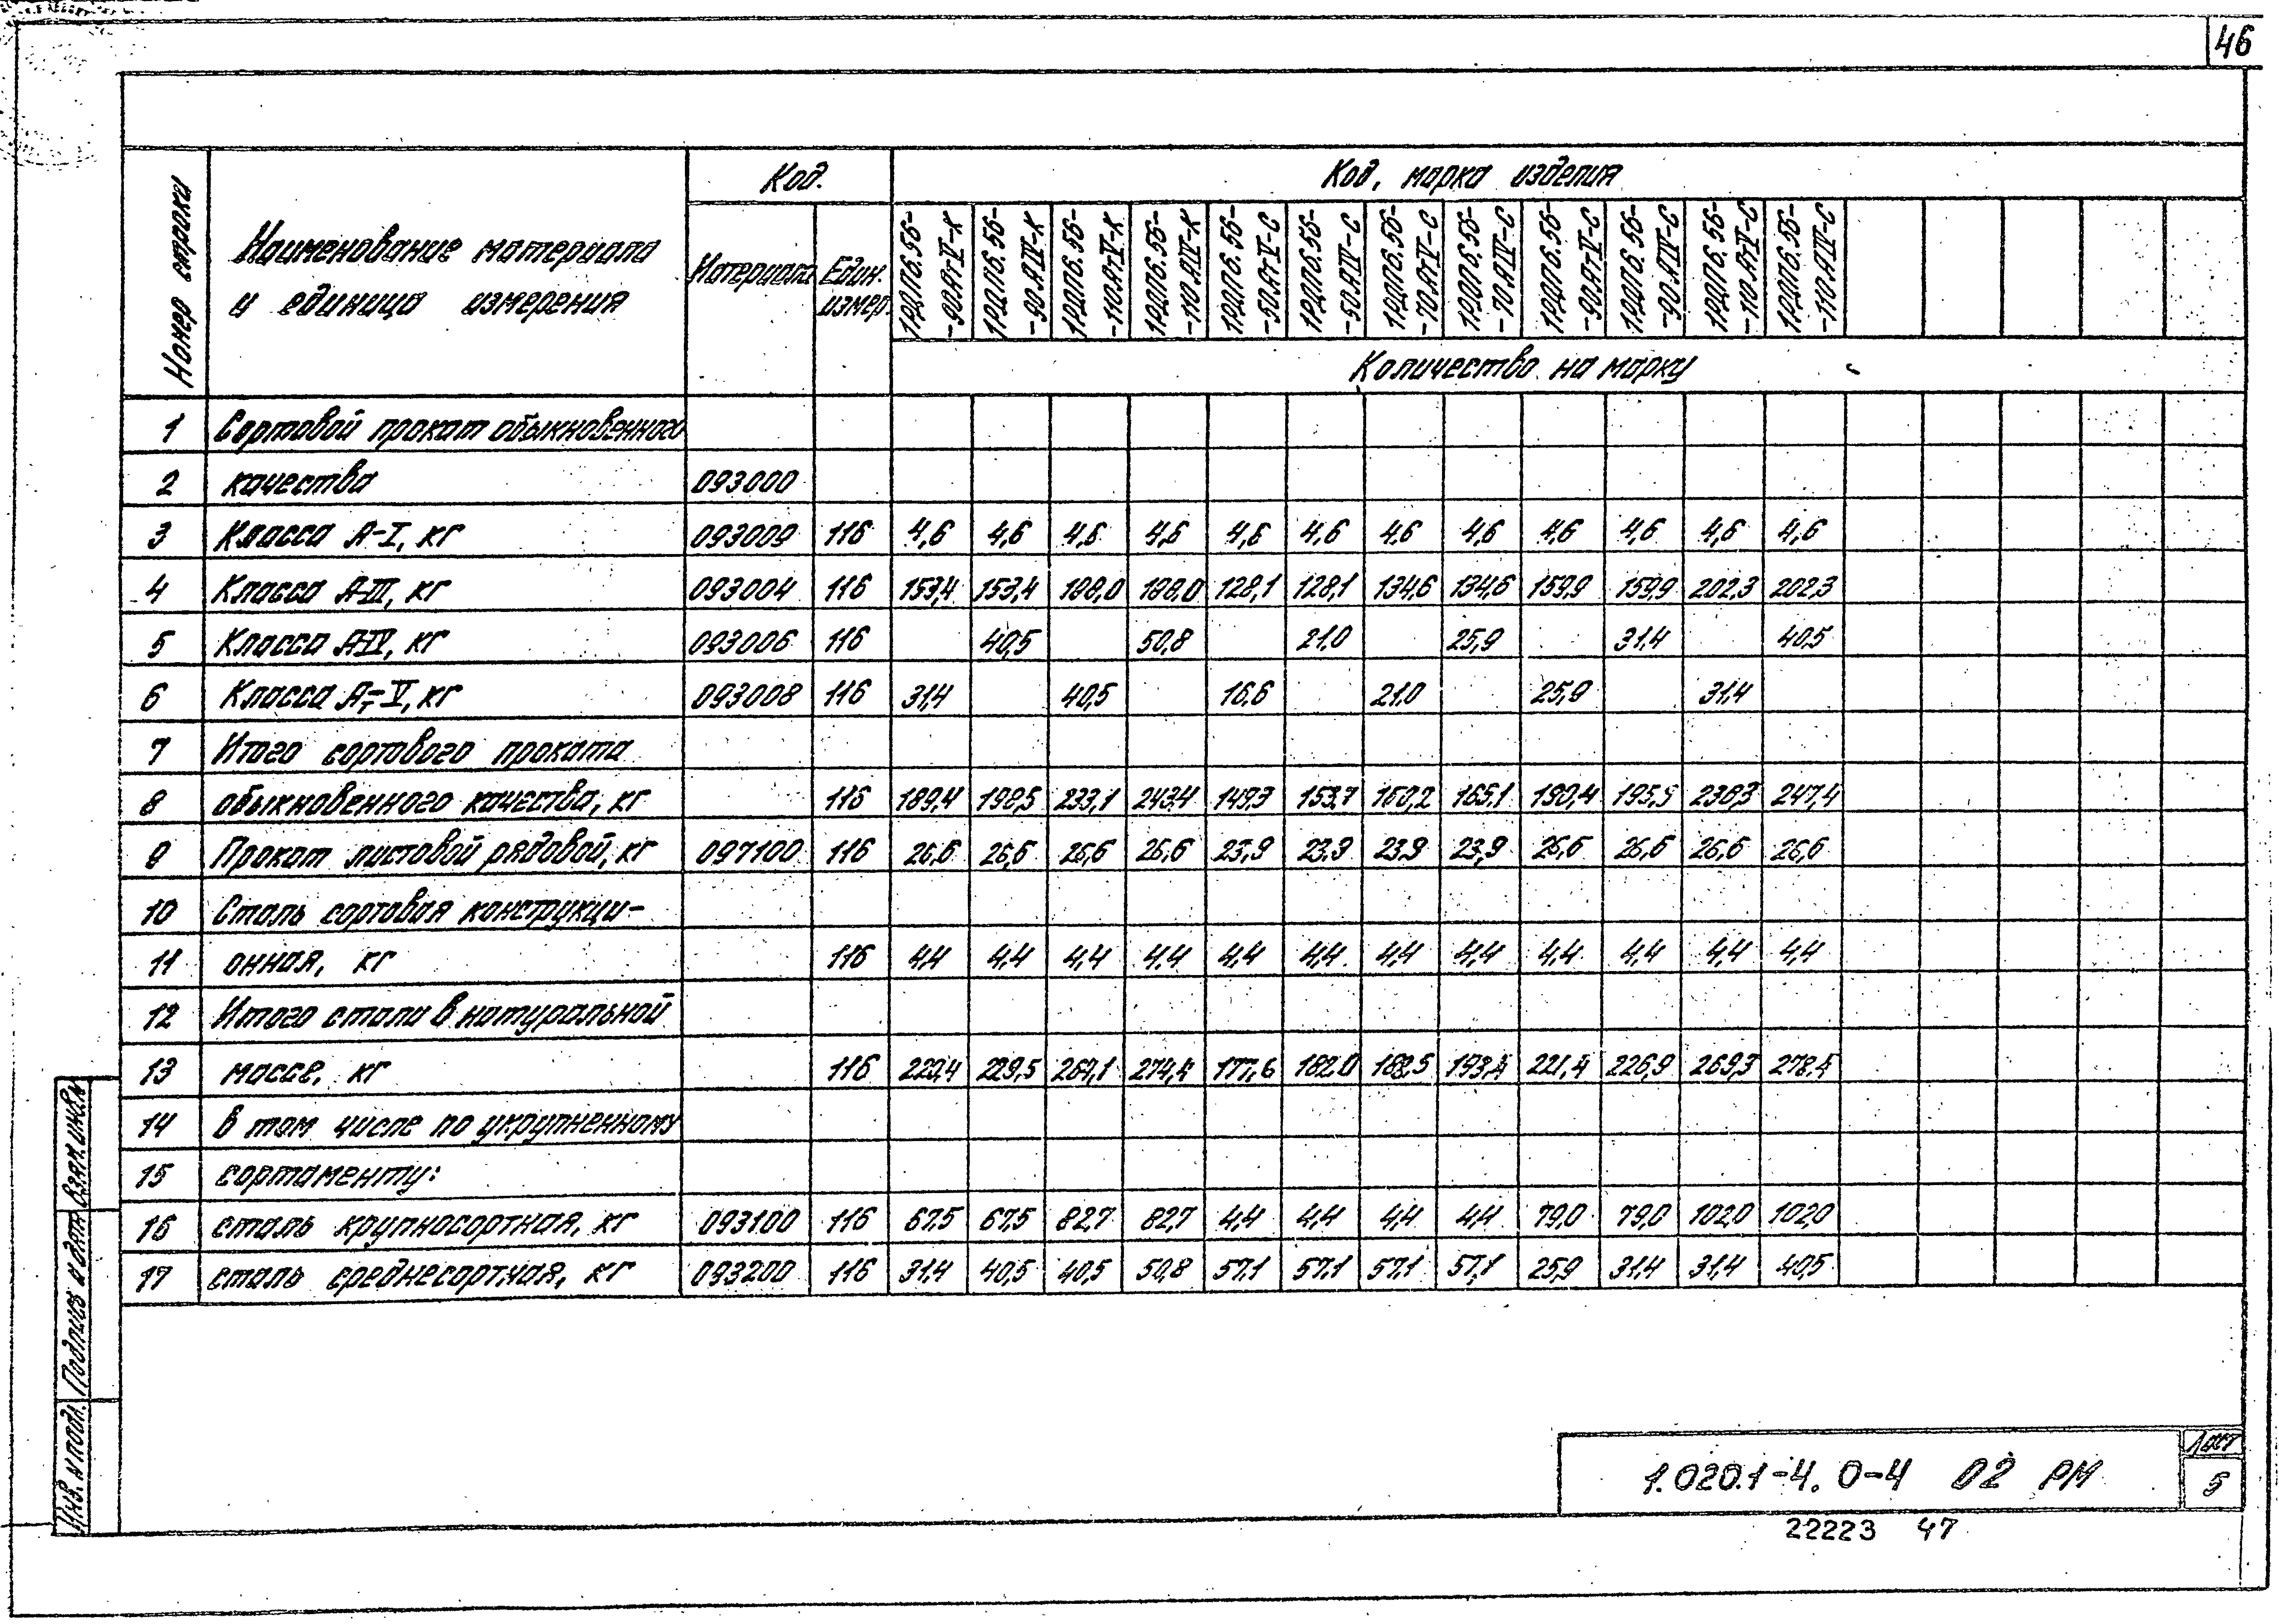 46
Номер строки
Наименование материала и единица измерения
Код.
Код, марка изделия
Материала
Един. измер.
1РДП6.56-90АтV-К
1РДП6.56-90АIV-К
1РДП6.56-110АтV-К
1РДП6.56-110АIV-К
1РДП6.56-50АтV-С
1РДП6.56-50АIV-С
1РДП6.56-70АтV-С
1РДП6.56-70АIV-С
1РДП6.56-90АтV-С
1РДП6.56-90АIV-С
1РДП6.56-110АтV-С
1РДП6.56-110АIV-С
Количество на марку
1 Сортовой прокат обыкновенного
2 качества 093000
3 Класса А-I, кг 093009 116 4,6 4,6 4,6 4,6 4,6 4,6 4,6 4,6 4,6 4,6 4,6 4,6
4 Класса А-III, кг 093004 116 153,4 153,4 188,0 188,0 128,1 128,1 134,6 134,6 159,9 159,9 202,3 202,3
5 Класса А-IV, кг 093006 116 40,5 50,8 21,0 25,9 31,4 40,5
6 Класса Ат-V, кг 093008 116 31,4 40,5 16,6 21,0 25,9 31,4
7 Итого сортового проката
8 обыкновенного качества, кг 116 189,4 198,5 233,1 243,4 149,3 153,7 160,2 165,1 190,4 195,9 238,3 247,4
9 Прокат листовой рядовой, кг 097100 116 26,6 26,6 26,6 26,6 23,9 23,9 23,9 23,9 26,6 26,6 26,6 26,6
10 Сталь сортовая конструкци-
11 онная, кг 116 4,4 4,4 4,4 4,4 4,4 4,4 4,4 4,4 4,4 4,4 4,4 4,4
12 Итого стали в натуральной
13 массе, кг 116 220,4 229,5 264,1 274,4 177,6 182,0 188,5 193,4 221,4 226,9 269,3 278,4
14 в том числе по укрупненному
15 сортаменту:
16 сталь крупносортная, кг 093100 116 67,5 67,5 82,7 82,7 4,4 4,4 4,4 4,4 79,0 79,0 102,0 102,0
17 сталь среднесортная, кг 093200 116 31,4 40,5 40,5 50,8 57,1 57,1 57,1 57,1 25,9 31,4 31,4 40,5
Инв. № подл.
Подпись и дата
Взам. инв. №
1.020.1-4. 0-4 02 РМ
Лист
5
22223 47